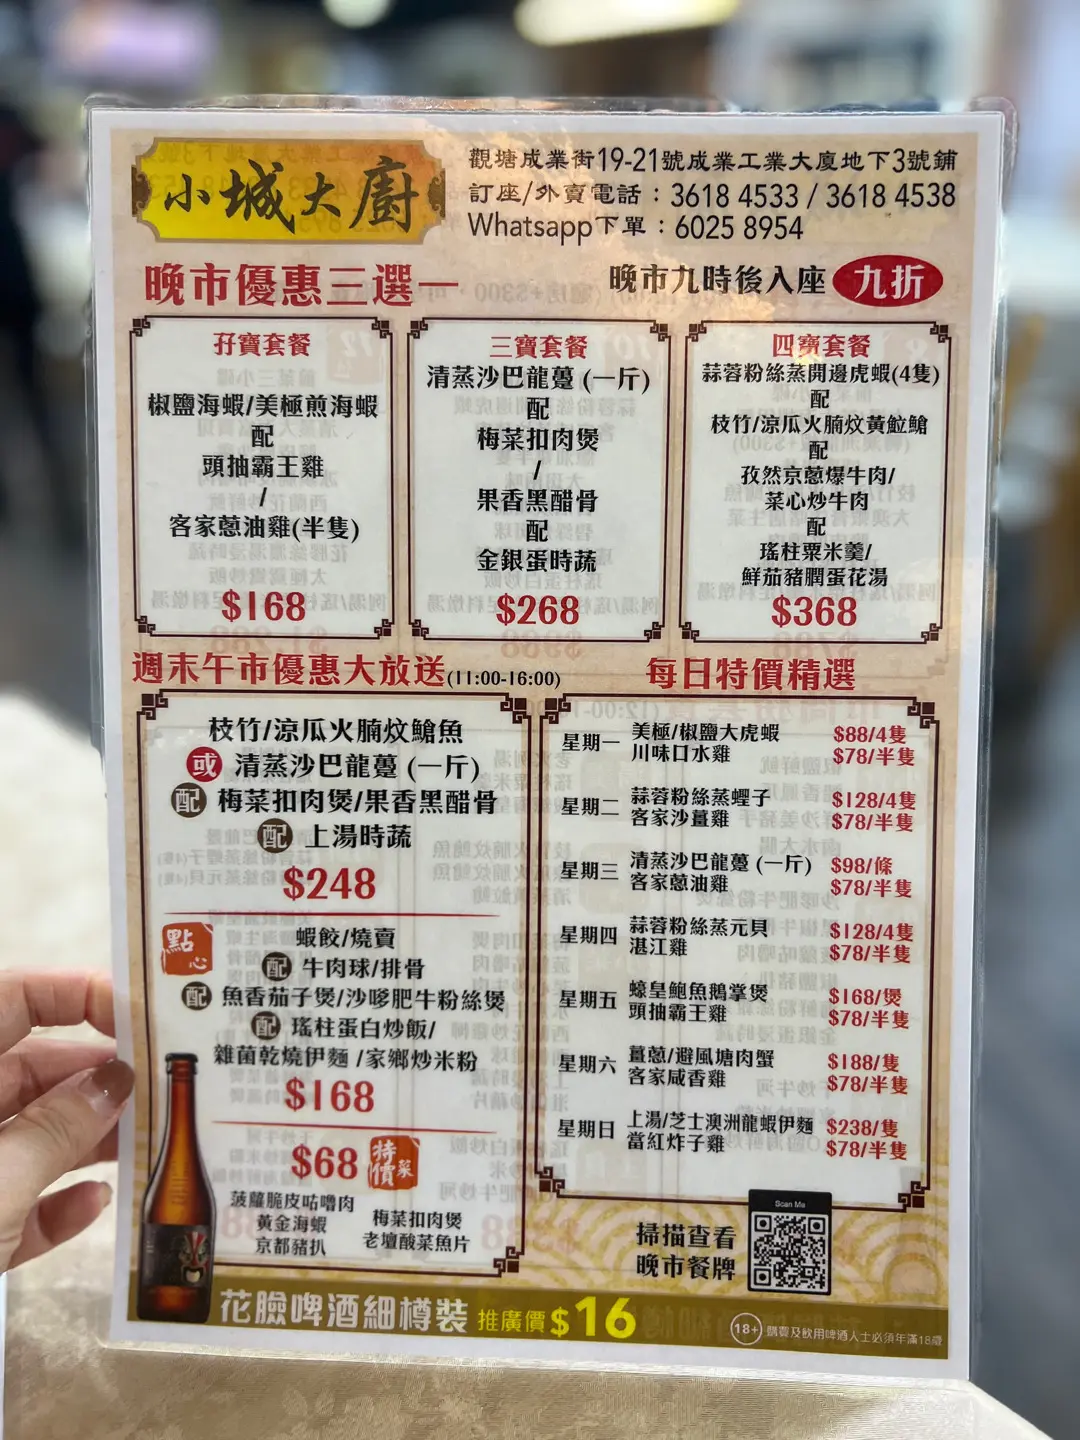 小城大廚
觀塘成業街19-21號成業工業大廈地下3號鋪
訂座/外賣電話：3618 4533 / 3618 4538
Whatsapp下單：6025 8954
晚市優惠三選一
晚市九時後入座 九折
孖寶套餐
椒鹽海蝦/美極煎海蝦
配
頭抽霸王雞
/
客家蔥油雞(半隻)
$168
三寶套餐
清蒸沙巴龍躉 (一斤)
配
梅菜扣肉煲
/
果香黑醋骨
配
金銀蛋時蔬
$268
四寶套餐
蒜蓉粉絲蒸開邊虎蝦(4隻)
配
枝竹/涼瓜火腩炆黃䱽鯧
配
孜然京蔥爆牛肉/
菜心炒牛肉
配
瑤柱粟米羹/
鮮茄豬膶蛋花湯
$368
週末午市優惠大放送(11:00-16:00)
枝竹/涼瓜火腩炆鯧魚
或 清蒸沙巴龍躉 (一斤)
配 梅菜扣肉煲/果香黑醋骨
配 上湯時蔬
$248
點心
蝦餃/燒賣
配 牛肉球/排骨
配 魚香茄子煲/沙嗲肥牛粉絲煲
配 瑤柱蛋白炒飯/
雜菌乾燒伊麵 /家鄉炒米粉
$168
$68 特價菜
菠蘿脆皮咕嚕肉
黃金海蝦
京都豬扒
梅菜扣肉煲
老壇酸菜魚片
每日特價精選
星期一 美極/椒鹽大虎蝦 $88/4隻
川味口水雞 $78/半隻
星期二 蒜蓉粉絲蒸蟶子 $128/4隻
客家沙薑雞 $78/半隻
星期三 清蒸沙巴龍躉 (一斤) $98/條
客家蔥油雞 $78/半隻
星期四 蒜蓉粉絲蒸元貝 $128/4隻
湛江雞 $78/半隻
星期五 蠔皇鮑魚鵝掌煲 $168/煲
頭抽霸王雞 $78/半隻
星期六 薑蔥/避風塘肉蟹 $188/隻
客家咸香雞 $78/半隻
星期日 上湯/芝士澳洲龍蝦伊麵 $238/隻
當紅炸子雞 $78/半隻
掃描查看
晚市餐牌
Scan Me
花臉啤酒細樽裝 推廣價$16
18+ 購買及飲用啤酒人士必須年滿18歲